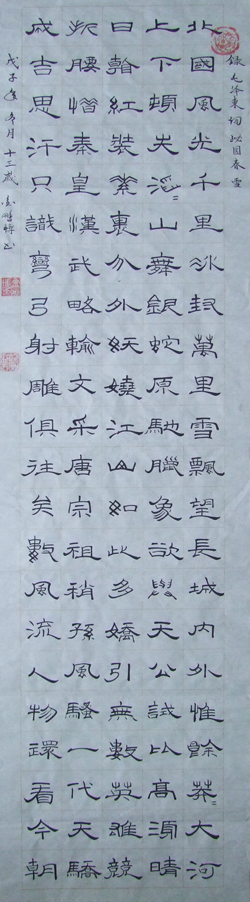 錄毛泽東詞沁园春雪
北國風光千里冰封萬里雪飄望長城内外惟餘莽〻大河
上下頓失滔〻山舞銀蛇原馳臘象欲與天公試比高須晴
日看紅裝素裹分外妖嬈江山如此多嬌引無數英雄競
折腰惜秦皇漢武略輸文采唐宗祖稍孫風騷一代天驕
成吉思汗只識彎弓射雕俱往矣數風流人物環看今朝
戊子年 月十三歲